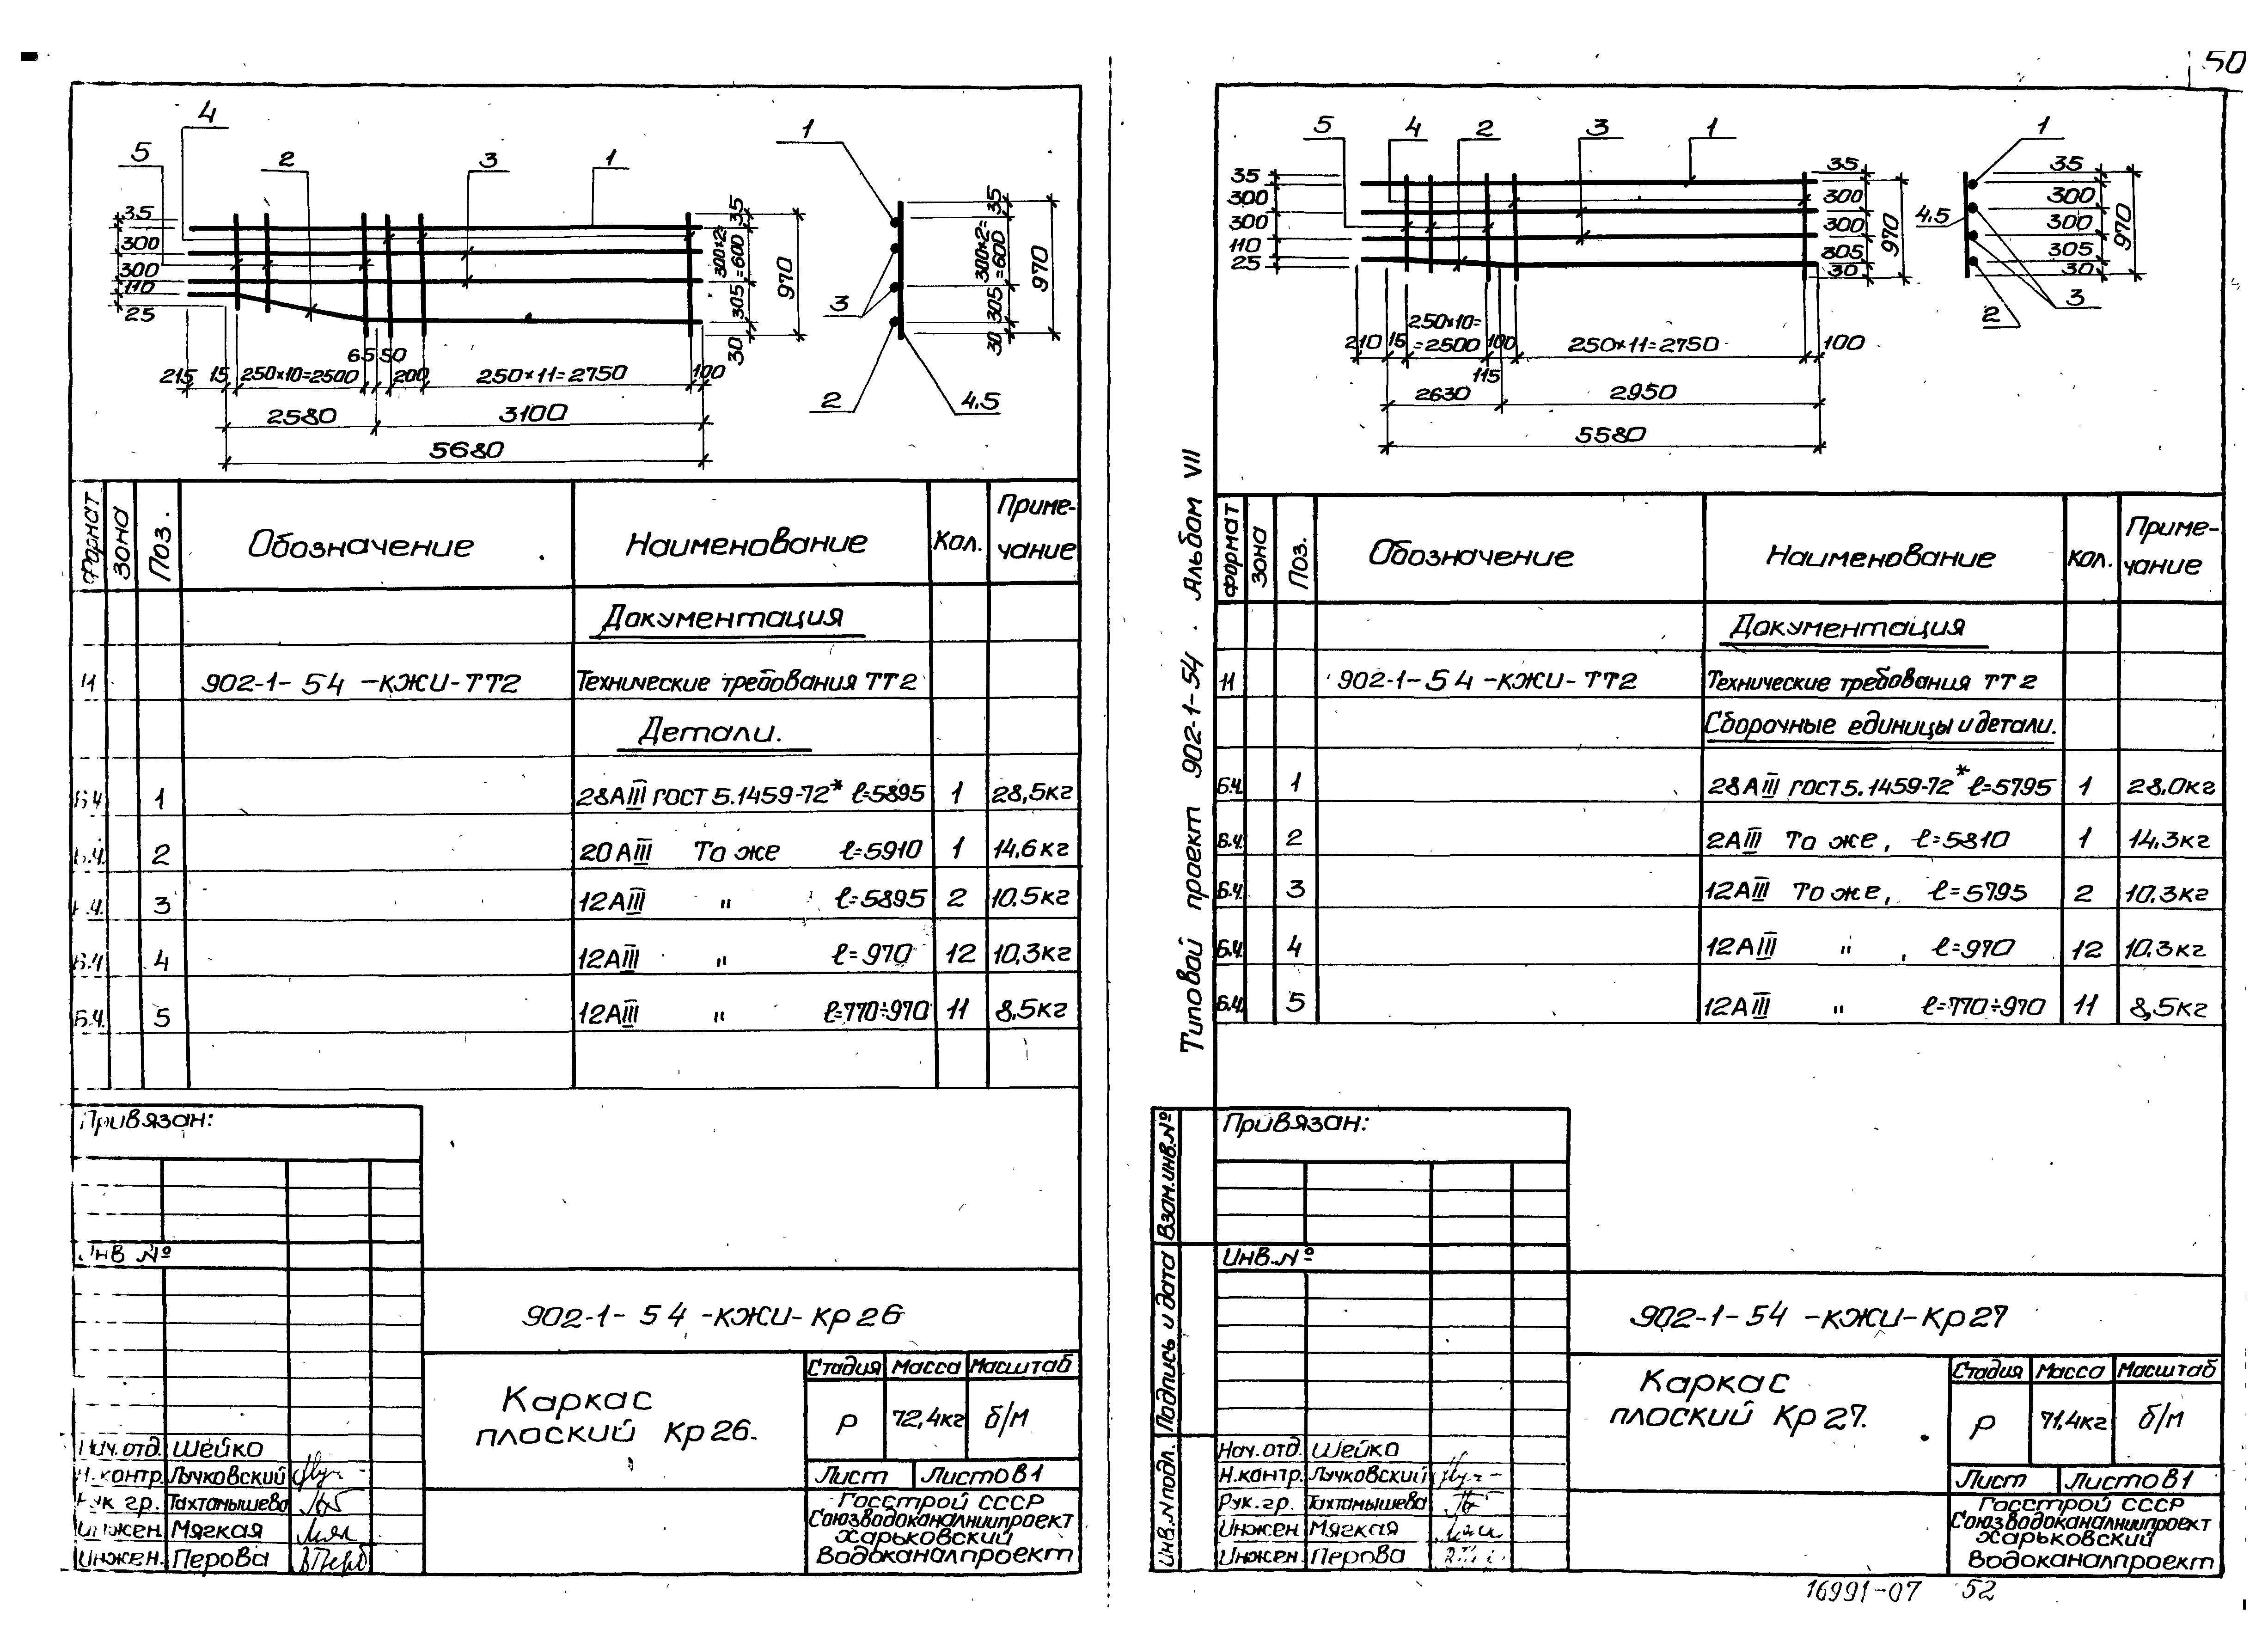 50
4
5
2
3
1
35
300
300
110
25
300×2=
=600
35
305
30
970
65 50
215 15 250×10=2500 200 250×11=2750 100
2580 3100
5680
1
3
2
4.5
35
300×2=
=600
305
30
970
Формат
Зона
Поз.
Обозначение
Наименование
Кол.
Приме-
чание
Документация
11 902-1-54-КЖИ-ТТ2 Технические требования ТТ2
Детали.
Б.Ч. 1 28АIII ГОСТ 5.1459-72* ℓ=5895 1 28,5кг
Б.Ч. 2 20АIII То же ℓ=5910 1 14.6кг
Б.Ч. 3 12АIII " ℓ=5895 2 10.5кг
Б.Ч. 4 12АIII " ℓ=970 12 10.3кг
Б.Ч. 5 12АIII " ℓ=770÷970 11 8.5кг
Привязан:
Инв №
902-1-54-КЖИ-Кр26
Каркас
плоский Кр26.
Стадия Масса Масштаб
Р 72,4кг б/м
Лист Листов 1
Госстрой СССР
Союзводоканалниипроект
Харьковский
Водоканалпроект
Нач.отд. Шейко
Н.контр. Лычковский
Рук.гр. Тахтамышева
Инжен. Мягкая
Инжен. Перова
5
4
2
3
1
35
300
300
110
25
35
300
300
305
30
970
250×10=
210 15 =2500 100 250×11=2750 100
115
2630 2950
5580
1
4.5
3
2
35
300
300
305
30
970
Типовой проект 902-1-54. Альбом VII
Формат
Зона
Поз.
Обозначение
Наименование
Кол.
Приме-
чание
Документация
11 902-1-54-КЖИ-ТТ2 Технические требования ТТ2
Сборочные единицы и детали.
Б.Ч. 1 28АIII ГОСТ 5.1459-72* ℓ=5795 1 28.0кг
Б.Ч. 2 2АIII То же, ℓ=5810 1 14.3кг
Б.Ч. 3 12АIII То же, ℓ=5795 2 10.3кг
Б.Ч. 4 12АIII " , ℓ=970 12 10.3кг
Б.Ч. 5 12АIII " ℓ=770÷970 11 8,5кг
Привязан:
Инв.№
Взам.инв.№
Подпись и дата
Инв.N подл.
902-1-54-КЖИ-Кр27
Каркас
плоский Кр27.
Стадия Масса Масштаб
Р 71.4кг б/м
Лист Листов 1
Госстрой СССР
Союзводоканалниипроект
Харьковский
Водоканалпроект
Нач.отд. Шейко
Н.контр. Лычковский
Рук.гр. Тахтамышева
Инжен. Мягкая
Инжен. Перова
16991-07 52